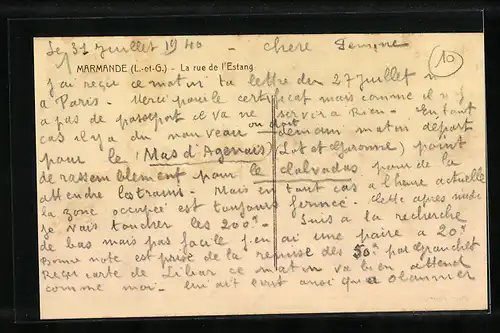 Le 31 Juillet 1940 - chere Femme
10
MARMANDE (L.-et-G.) – La rue de l'Estang
J'ai reçu ce matin ta lettre du 27 Juillet
a Paris. Merci pour le certificat mais comme il n'y
a pas de passeport il va ne servir a Rien. En tout
cas il y a du nouveau on doit demain matin départ
pour le (Mas d'Agenais) (Lot et Garonne) point
de rassemblement pour le calvados pour de la
attendre les trains. Mais en tout cas a l'heure actuelle
la zone occupée est toujours fermée. Cette après midi
je vais toucher les 200f. Suis a la recherche
de bas mais pas facile j'en ai une paire a 20f
Bonne note est prise de la remise des 50f par
Reçu carte de ce matin va bien attend
comme moi. lui ait écrit ainsi qu'a